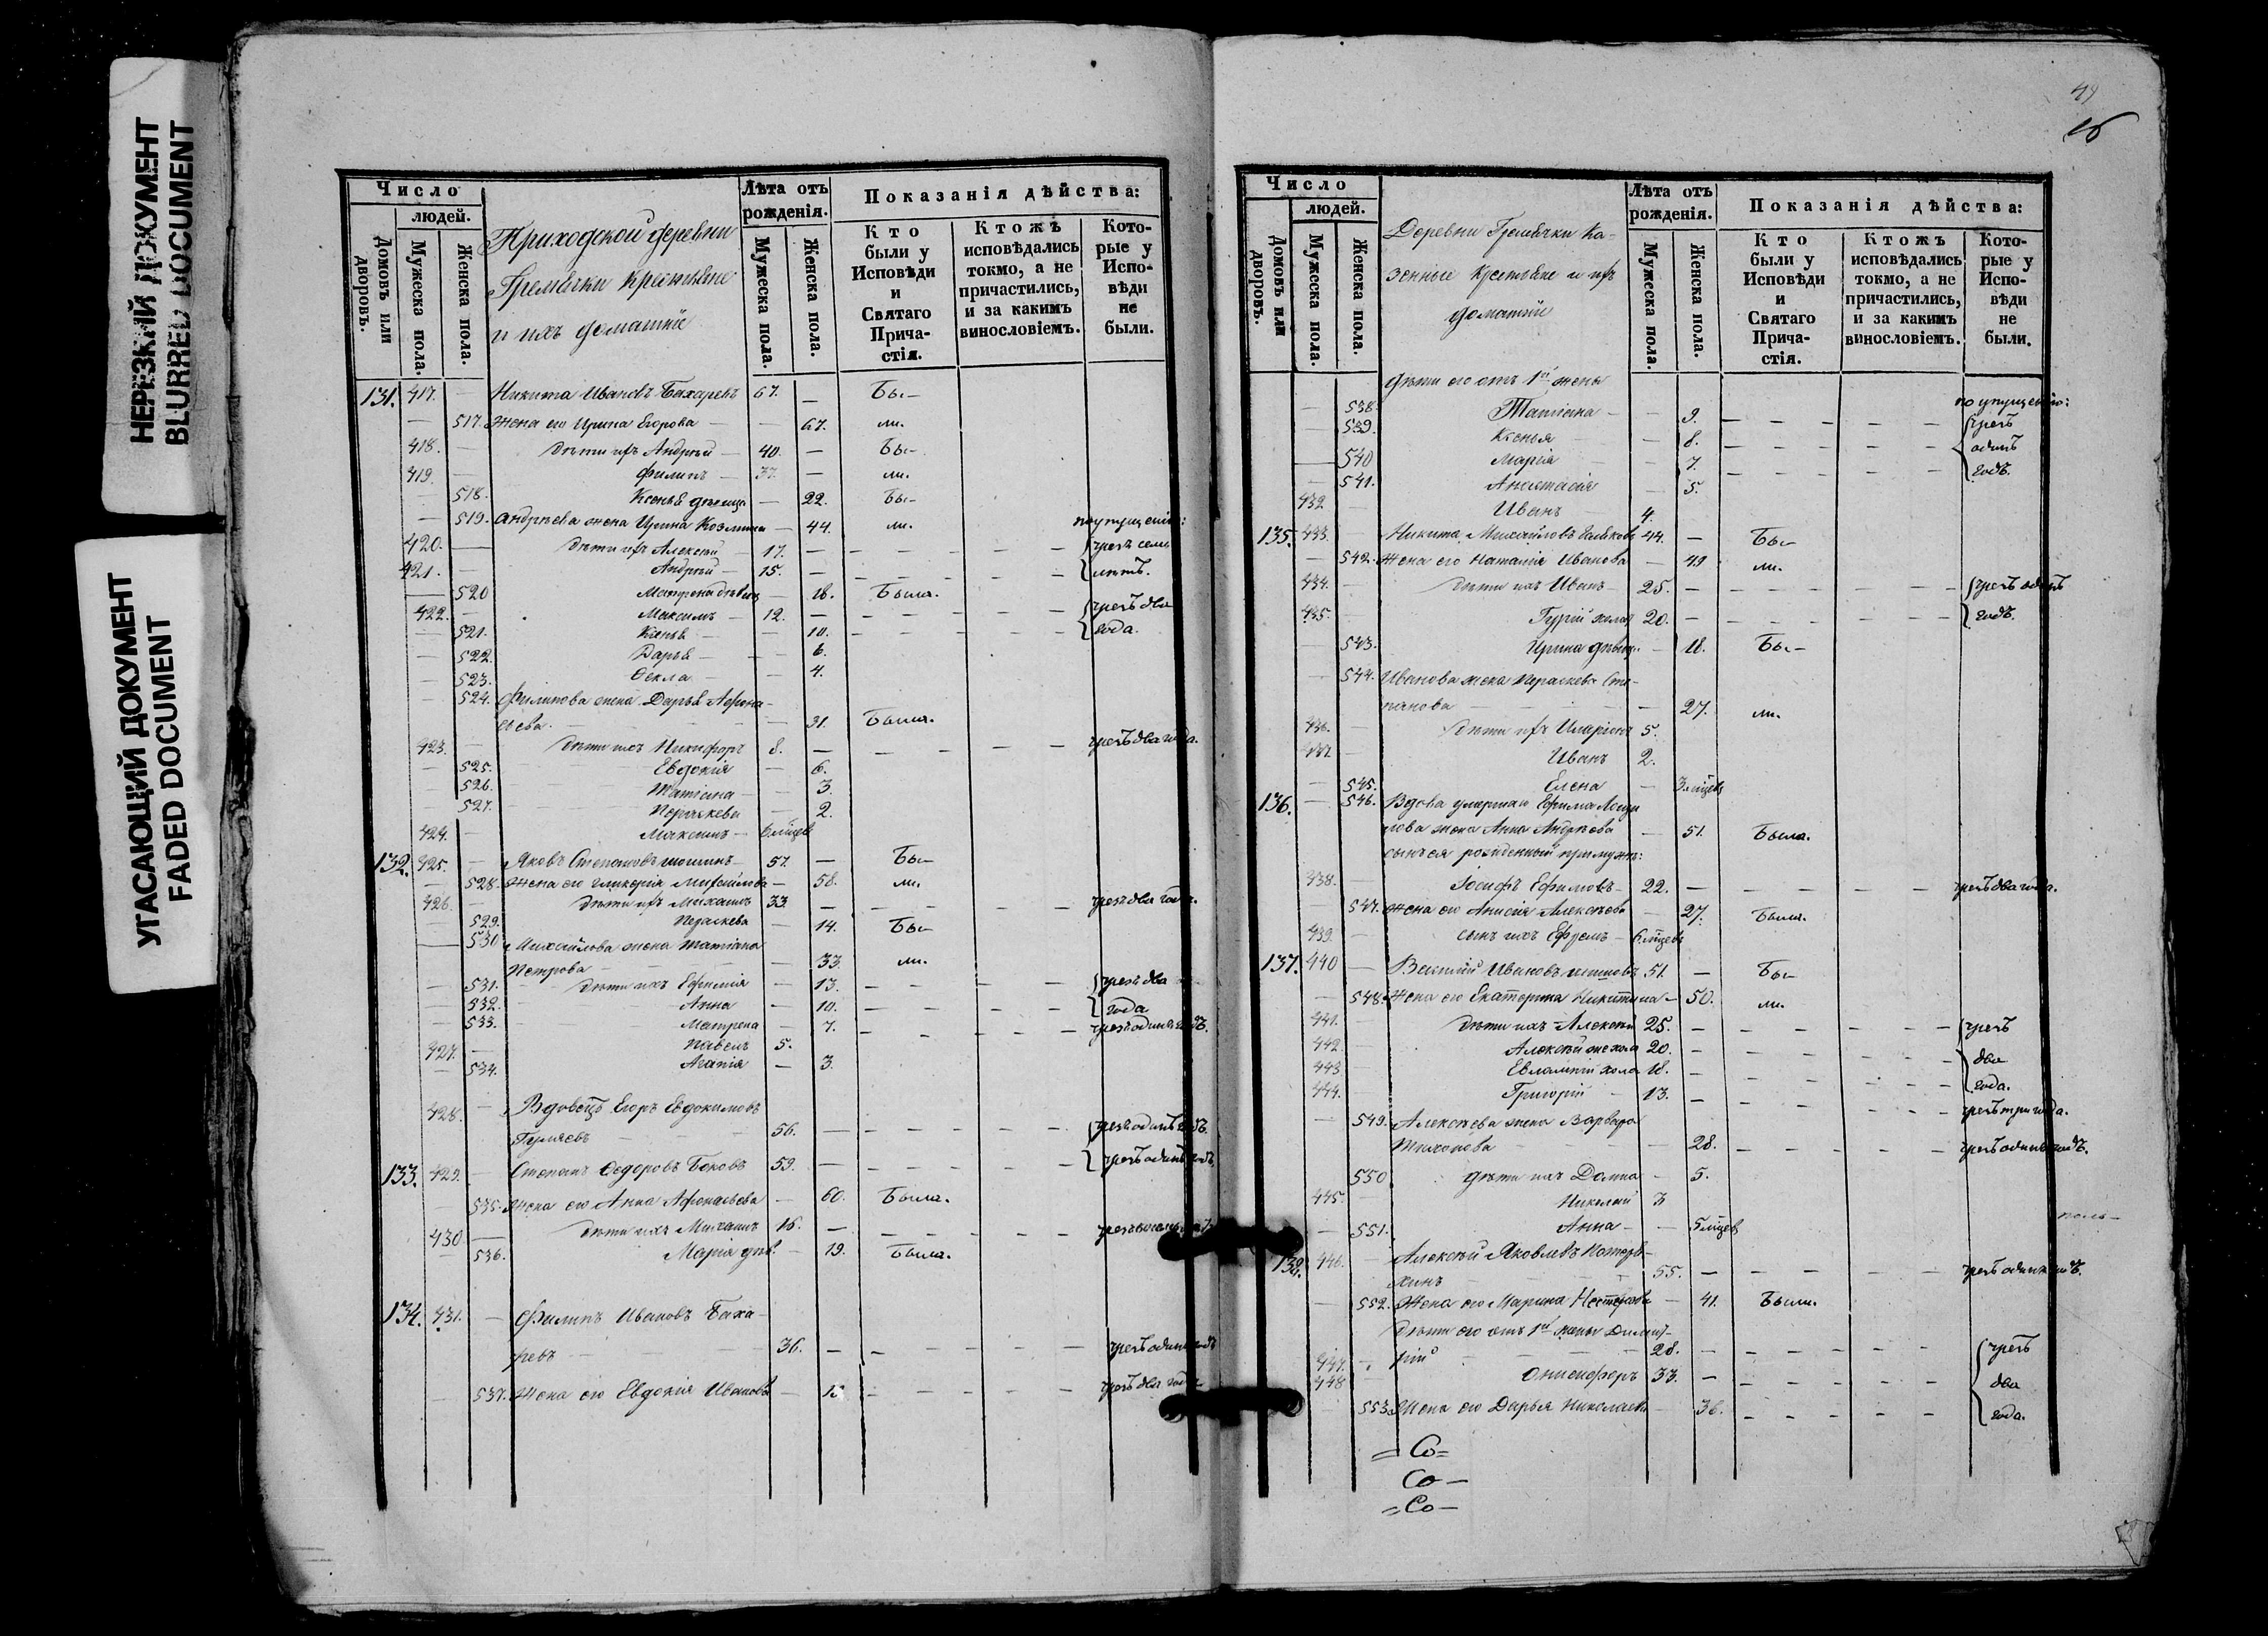 НЕРЕЗКИЙ ДОКУМЕНТ
BLURRED DOCUMENT
УГАСАЮЩИЙ ДОКУМЕНТ
FADED DOCUMENT
Число
людей.
Домовъ или дворовъ.
Мужеска пола.
Женска пола.
Приходской деревни
Гремячки крестьяне
и ихъ домашніе
Лѣта отъ рожденія.
Мужеска пола.
Женска пола.
Показанія дѣйства:
Кто были у Исповѣди и Святаго Прича-стія.
Ктожъ исповѣдались токмо, а не причастились, и за какимъ винословіемъ.
Кото-рые у Испо-вѣди не были.
131. 417. — Никита Ивановъ Бахаревъ 67. — Бы-
— 517. Жена его Ирина Егорова — 67. ли.
418. — Дѣти ихъ Андрей — 40. — Бы-
419. — Филипъ — 37. — ли.
— 518. Ксенья дѣвица — 22. Бы-
— 519. Андреева жена Ирина Козмина — 44. ли. по упущенію:
420. — Дѣти ихъ Алексѣй — 17. — — — — — чрезъ семь
421. — Андрей — 15. — — — — — лѣтъ.
— 520 Матрена дѣвица — 18. Была.
422. — Максимъ — 12. — — — — — чрезъ два
— 521. Ксенья — 10. — — — — — года.
— 522. Дарья — 6.
— 523. Ѳекла — 4.
— 524. Филипова жена Дарья Афона-
сьева — 31. Была.
423. — Дѣти ихъ Никифоръ 8. — — — — — чрезъ два года.
— 525. Евдокія — 6.
— 526. Татіана — 3.
— 527. Параскева 2.
424. — Максимъ — 6 мѣсяцев
132. 425. — Яковъ Степановъ 57. — Бы-
— 528. Жена его Гликерія Михайлова — 58. ли.
426. — Дѣти ихъ Михаилъ 33. — — — — чрезъ два года.
— 529. Параскева — 14. Бы-
— 530 Михайлова жена Татіана
Петрова — 33. ли.
— 531. Дѣти ихъ Ефимія — 13. — — — — чрезъ два
— 532. Анна — 10. — — — — года
— 533. Матрена — 7. — — — — чрезъ одинъ годъ.
427. — Павелъ 5.
— 534. Агапія — 3.
428. — Вдовецъ Егоръ Евдокимовъ
56. — — — — — чрезъ одинъ годъ.
133. 429. — Степанъ Ѳедоровъ Боковъ 59. — — — — — чрезъ одинъ годъ.
— 535. Жена его Анна Афонасьева — 60. Была.
430 — Дѣти ихъ Михаилъ 16. — — — — —
— 536. Марія дѣв. — 19. Была.
134. 431. — Филипъ Ивановъ Баха-
ревъ — 36. — — — — — чрезъ одинъ годъ
— 537. Жена его Евдокія Иванова — — — — — чрезъ два года
49
Число
людей.
Домовъ или дворовъ.
Мужеска пола.
Женска пола.
Деревни Гремячки Ка-
зенные крестьяне и ихъ
домашніе
Лѣта отъ рожденія.
Мужеска пола.
Женска пола.
Показанія дѣйства:
Кто были у Исповѣди и Святаго Прича-стія.
Ктожъ исповѣдались токмо, а не причастились, и за какимъ винословіемъ.
Кото-рые у Испо-вѣди не были.
дѣти его отъ 1й жены
— 538. Татіана — — 9. — — — — — по упущенію: чрезъ
— 539. Ксенья — 8. — — — — — одинъ
— 540 Марія — 7. — — — — — годъ.
— 541. Анастасія — 5.
432 — Иванъ — 4.
135. 433. — Никита Михайловъ 44. — Бы-
— 542. Жена его Наталія Иванова — 49 ли.
434. — Дѣти ихъ Иванъ — 25. — — — — — чрезъ одинъ
435. — Гурій холос 20. — — — — — годъ.
— 543. Ирина дѣвиц. — 18. Бы-
— 544. Иванова жена Параскева Сте-
панова — 27. ли.
436. — Дѣти ихъ Иларіонъ 5.
437. — Иванъ 2.
— 545. Елена — 3 мѣсяцев
136. — 546. Вдова умершаго Ефима
жена Анна Андреева — 51. Была.
сынъ ея рожденный при мужѣ:
438. — Іосифъ Ефимовъ — 22. — — — — чрезъ два года.
— 547. Жена его Анисія Алексѣева — 27. Была.
439. — сынъ ихъ Ефремъ — 6 мѣсяцев
137. 440 — Василій Ивановъ 51. — Бы-
— 548. Жена его Екатерина Никитина — 50. ли.
441. — Дѣти ихъ Алексѣй 25. — — — — — чрезъ
442. — Алексѣй же холо 20. — — — — — два
443. — Евлампій холо 18. — — — — — года.
444. — Григорій — 13. — — — — — чрезъ три года.
— 549. Алексѣева жена Варвара
Тихонова — 28. — — — — — чрезъ одинъ годъ.
— 550 дѣти ихъ Домна — 5.
445. — Николай 3
— 551. Анна — — 5 мѣсяцев
138. 446. — Алексѣй Яковлевъ
55. — — — — — чрезъ одинъ годъ.
— 552. Жена его Марина Нестерова — 41. Была.
Дѣти его отъ 1й жены Димит-
447. — рій 28. — — — — — чрезъ
448 Онисифоръ 33. — — — — — два
— 553. Жена его Дарья Николаева 36. — — — — — года.
= Со =
Со —
= Со —